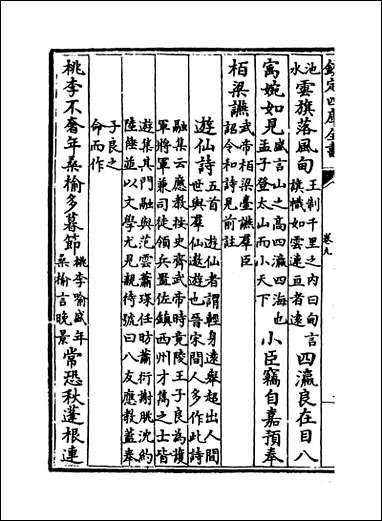 欽定四庫全書
卷九
池水雲旗落風甸王制千里之內曰甸言旗幟如雲連亘者遠四瀛良在目八
寓婉如見盛言山之高四瀛四海也孟子登太山而小天下小臣竊自嘉預奉
栢梁讌武帝栢梁臺讌羣臣詔令和詩見前註
遊仙詩五首 遊仙者謂輕身遠舉超出人間世與羣仙遨遊也晉宋間人多作此詩
融集云應教按史齊武帝時竟陵王子良為護軍將軍兼司徒領兵置佐鎮西州才雋之士皆
遊集其門融與范雲蕭琛任昉蕭衍謝朓沈約陸倕並以文學尤見親待號曰八友應教蓋奉
子良之命而作
桃李不奢年桑榆多暮節桃李喻盛年桑榆言晚景常恐秋蓬根連